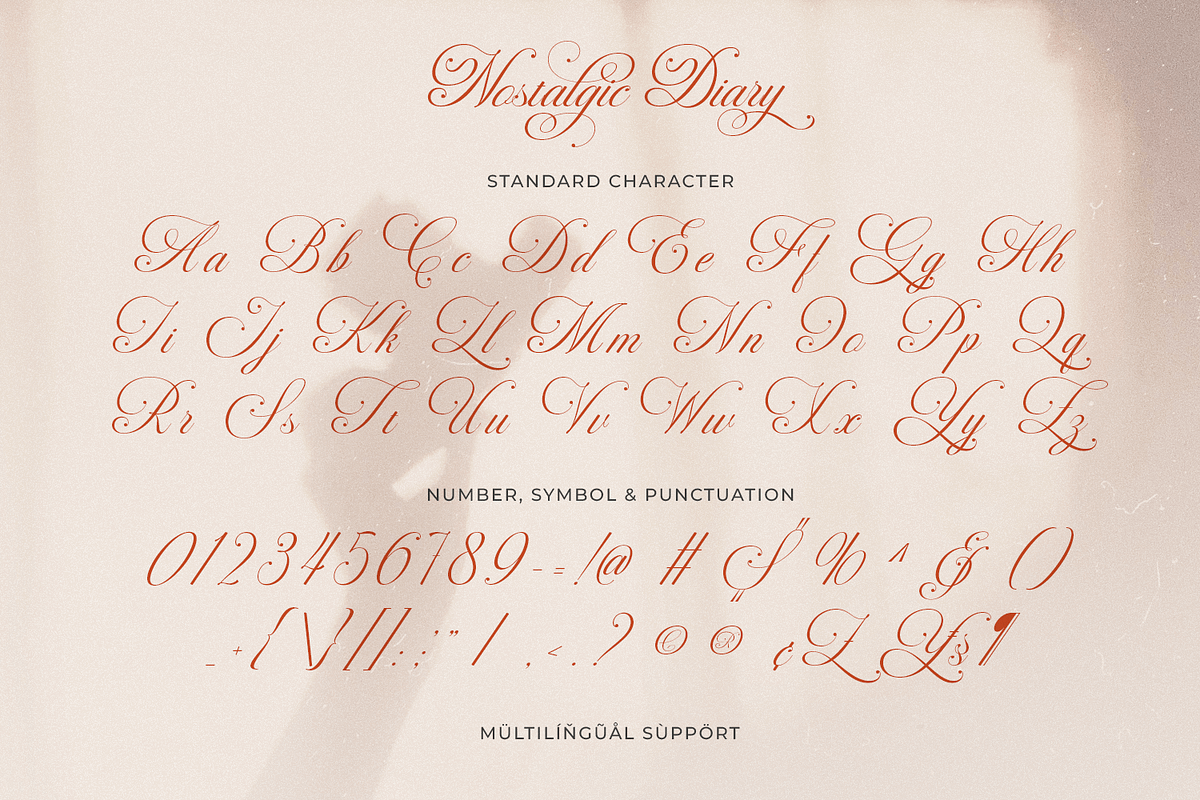 Nostalgic Diary
STANDARD CHARACTER
Aa Bb Cc Dd Ee Ff Gg Hh
Ii Jj Kk Ll Mm Nn Oo Pp Qq
Rr Ss Tt Uu Vv Ww Xx Yy Zz
NUMBER, SYMBOL & PUNCTUATION
0123456789-=!@ # $ % ^ & ()
_ +{\}[]:;'"/ ,<.? © ® ¢£ ¥§¶
MÜLTILÍŇGŨÅL SÙPPÖRT